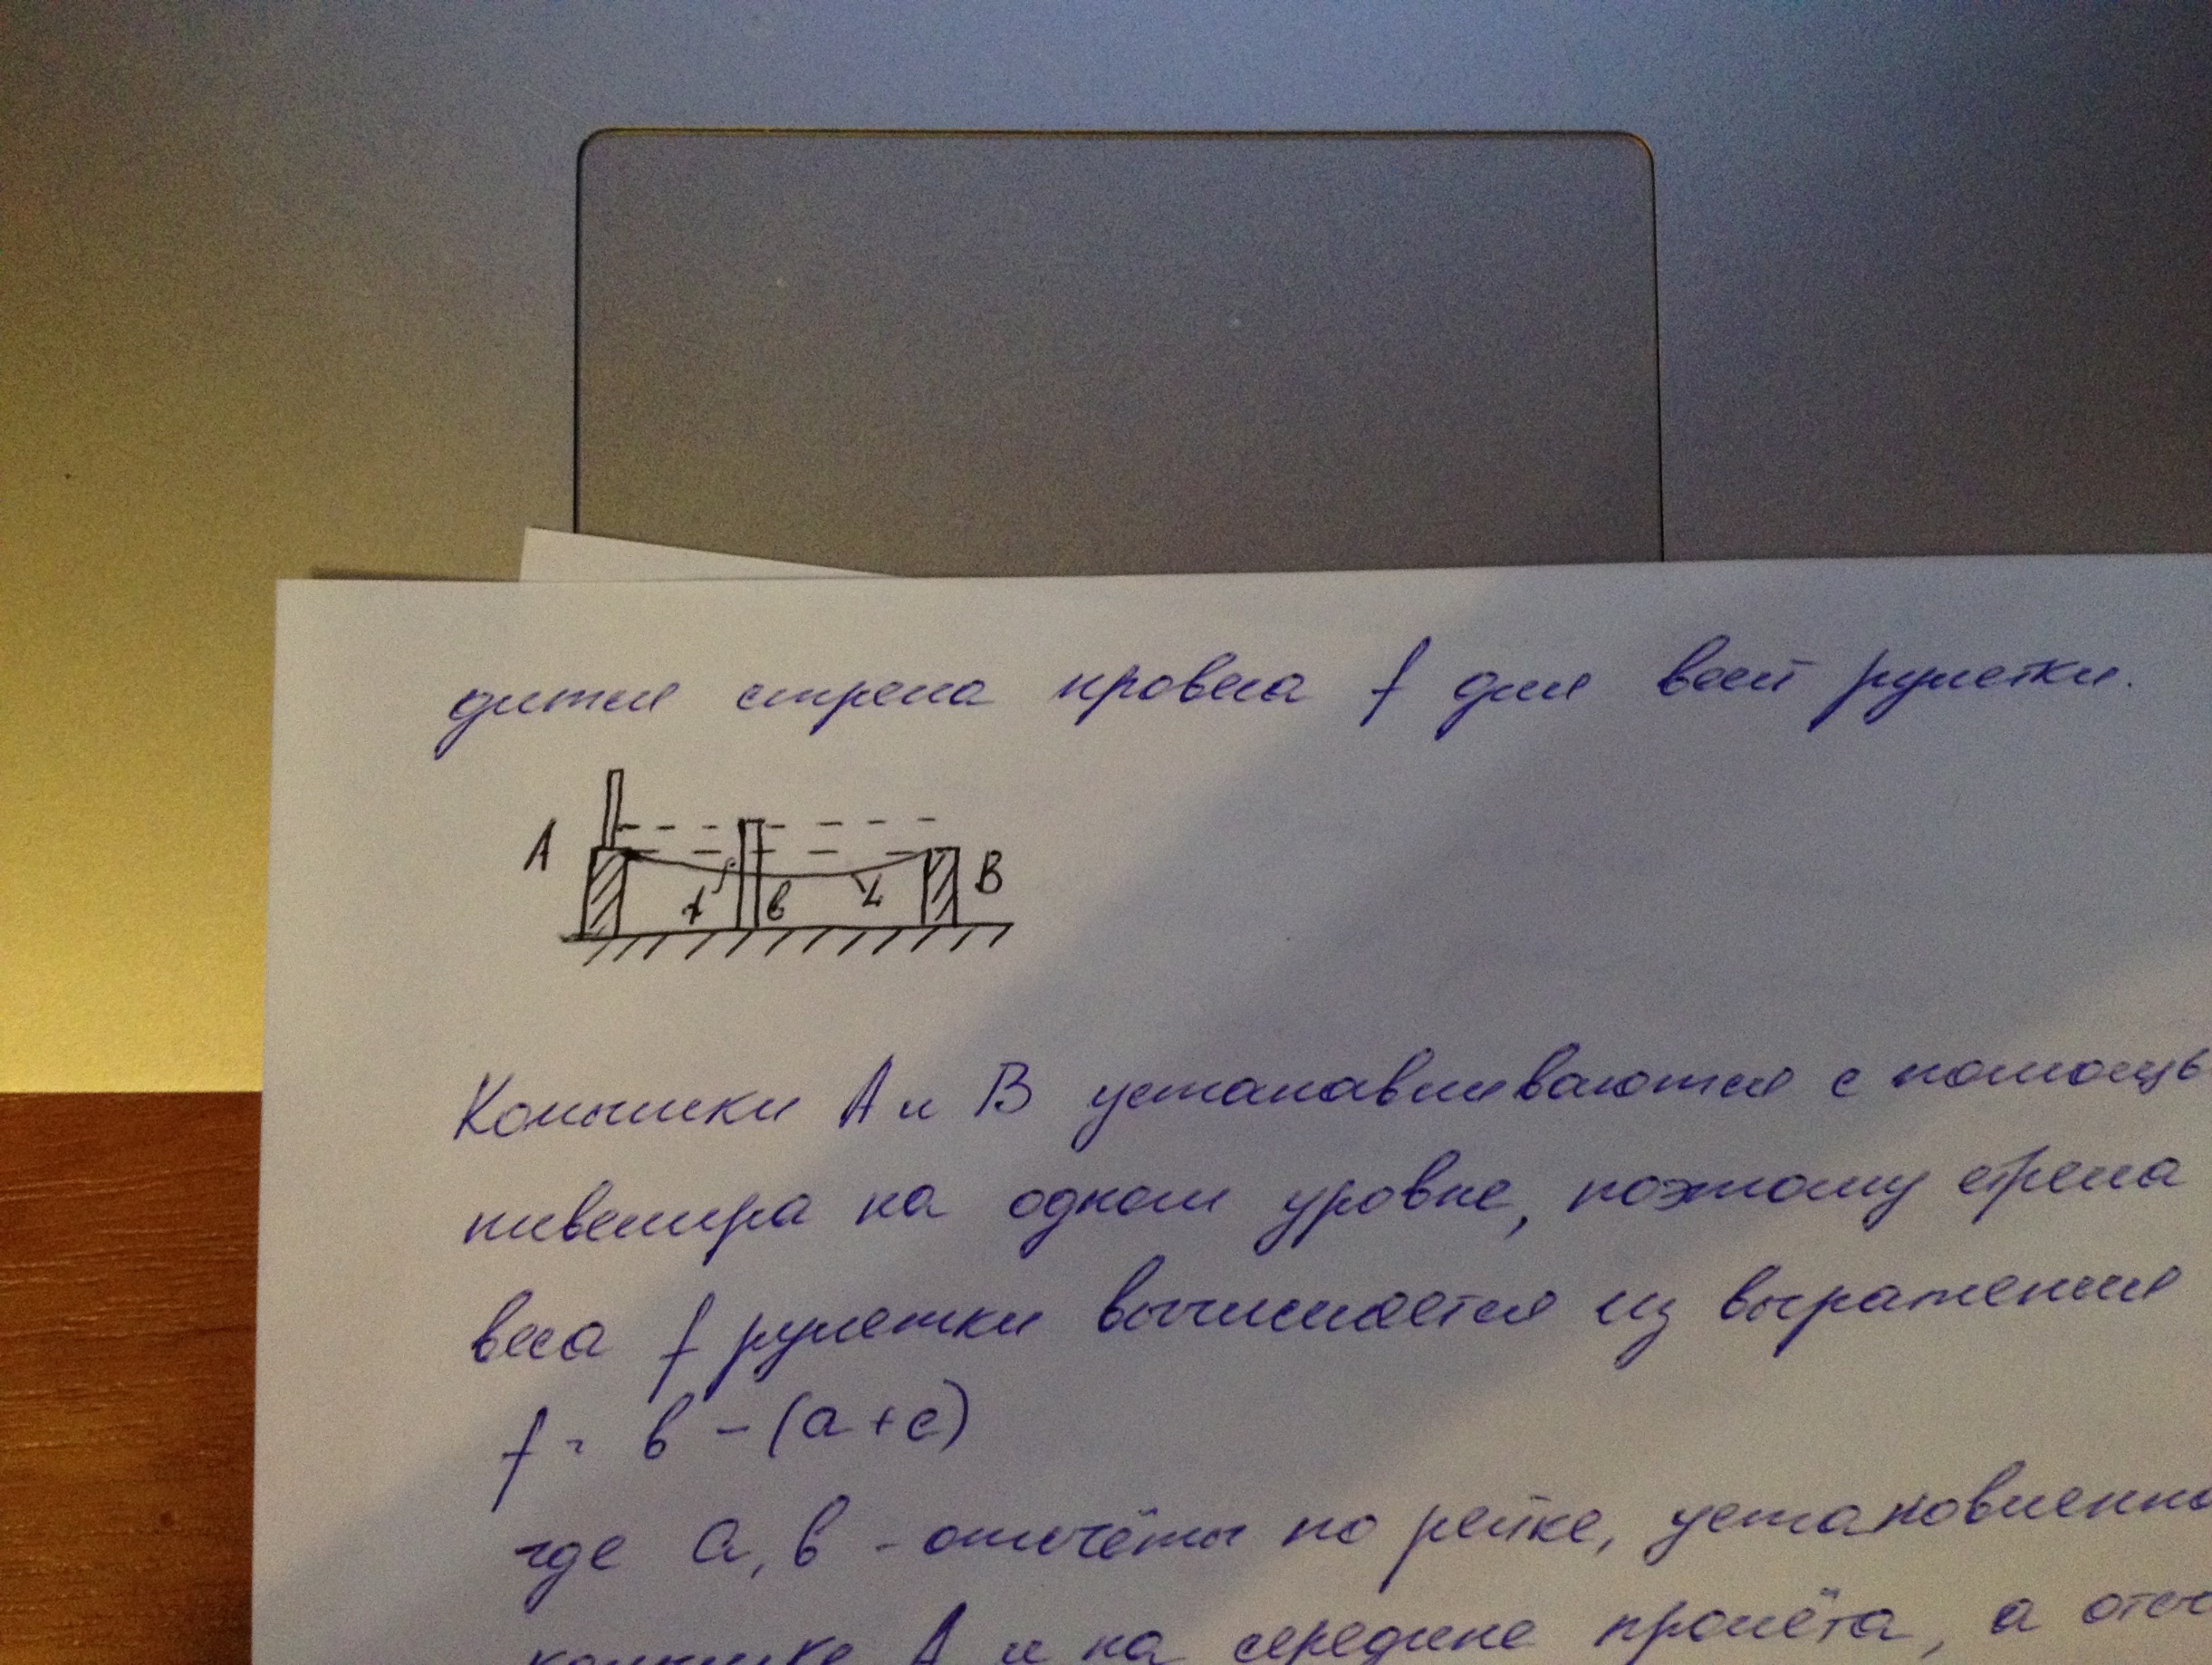 дится стрела провеса f для всей рулетки.
A
f
в
L
B
Колышки A и B устанавливаются с помощь
нивелира на одном уровне, поэтому стрела
веса f рулетки вычисляется из выражения
f = в - (a + c)
где a, в - отсчёты по рейке, установленно
колышке A и на середине пролёта, а отсч